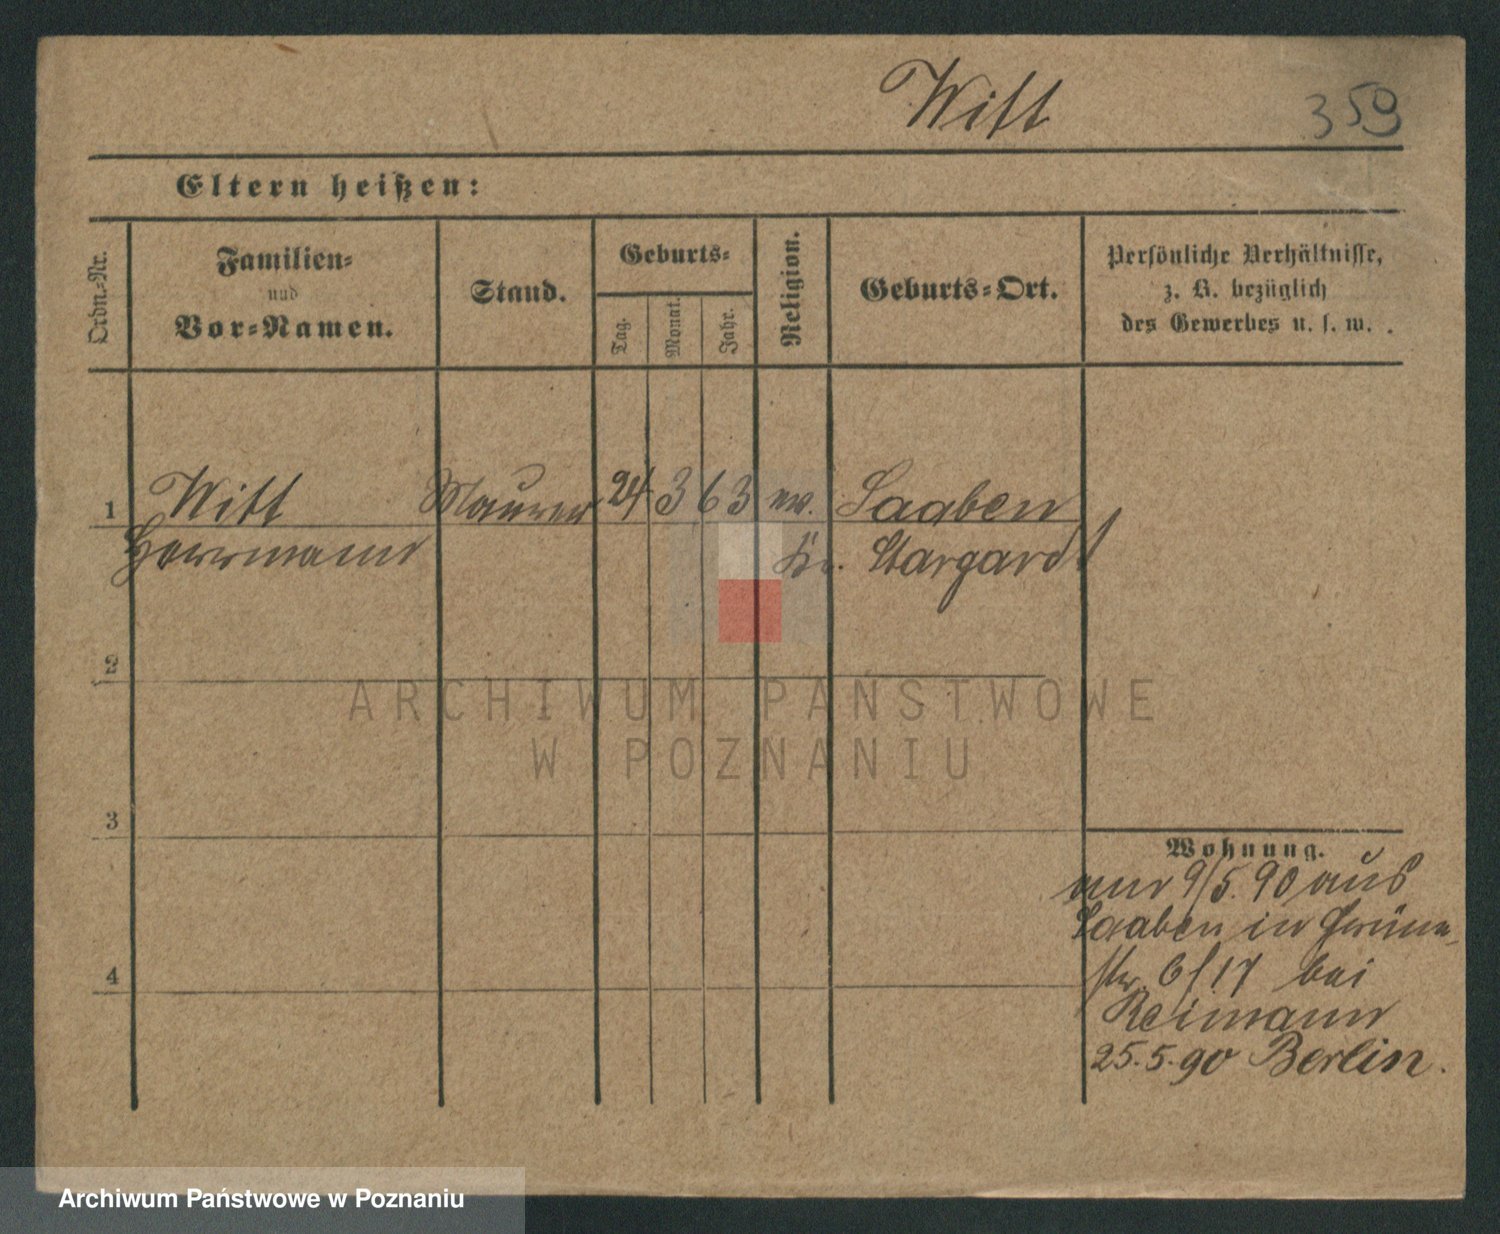 Witt
359
Eltern heißen:
Ordn.-Nr.
Familien-
und
Vor-Namen.
Stand.
Geburts-
Tag.
Monat.
Jahr.
Religion.
Geburts-Ort.
Persönliche Verhältnisse,
z. B. bezüglich
des Gewerbes u. s. w.
1 Witt Maurer 24 3 63 ev. Saaben
Herrmann Kr. Stargardt
2
3
4
Wohnung.
9/5.90 aus
Saaben in Grün-
str. 6/17 bei
Reimann
25.5.90 Berlin.
ARCHIWUM PAŃSTWOWE
W POZNANIU
Archiwum Państwowe w Poznaniu